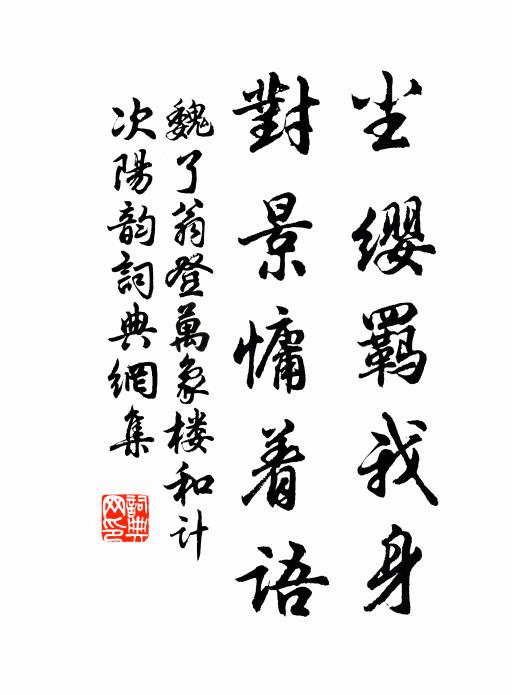 尘缨羁我身
對景慵着语
魏了翁登萬象楼和计
次陽韵詞典網集
詞典网印